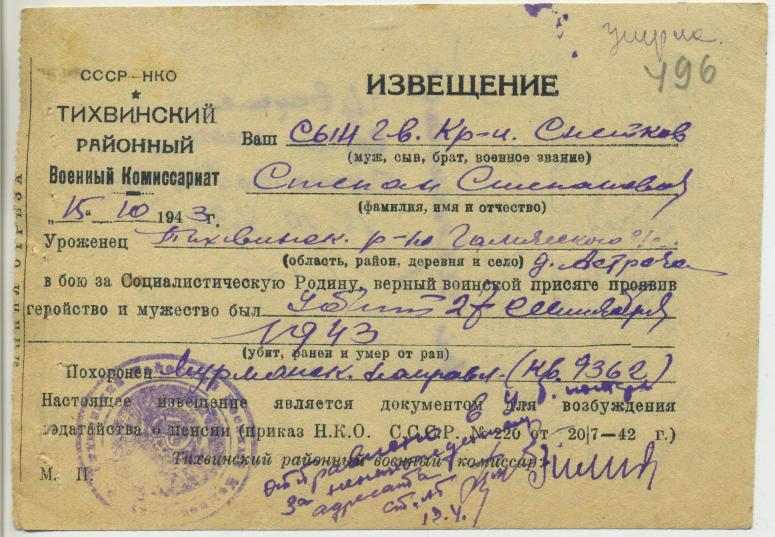 умерла.
496
СССР-НКО
ИЗВЕЩЕНИЕ
ТИХВИНСКИЙ
РАЙОННЫЙ
Военный Комиссариат
Ваш сын гв. Кр-ц. Снетков
(муж, сын, брат, военное звание)
Степан Степанович
(фамилия, имя и отчество)
„15" 10 1943г.
Уроженец Тихвинск. р-на
(область, район, деревня и село) д. Астрача
в бою за Социалистическую Родину, верный воинской присяге проявив
геройство и мужество был убит 27 сентября
1943
(убит, ранен и умер от ран)
Похоронен Мурманск. направл. (кв. 9362)
Настоящее извещение является документом для возбуждения
ходатайства о пенсии (приказ Н.К.О. С.С.С.Р. № 220 от 20|7-42 г.)
Тихвинский районный военный комиссар:
М. П.
за
адресата